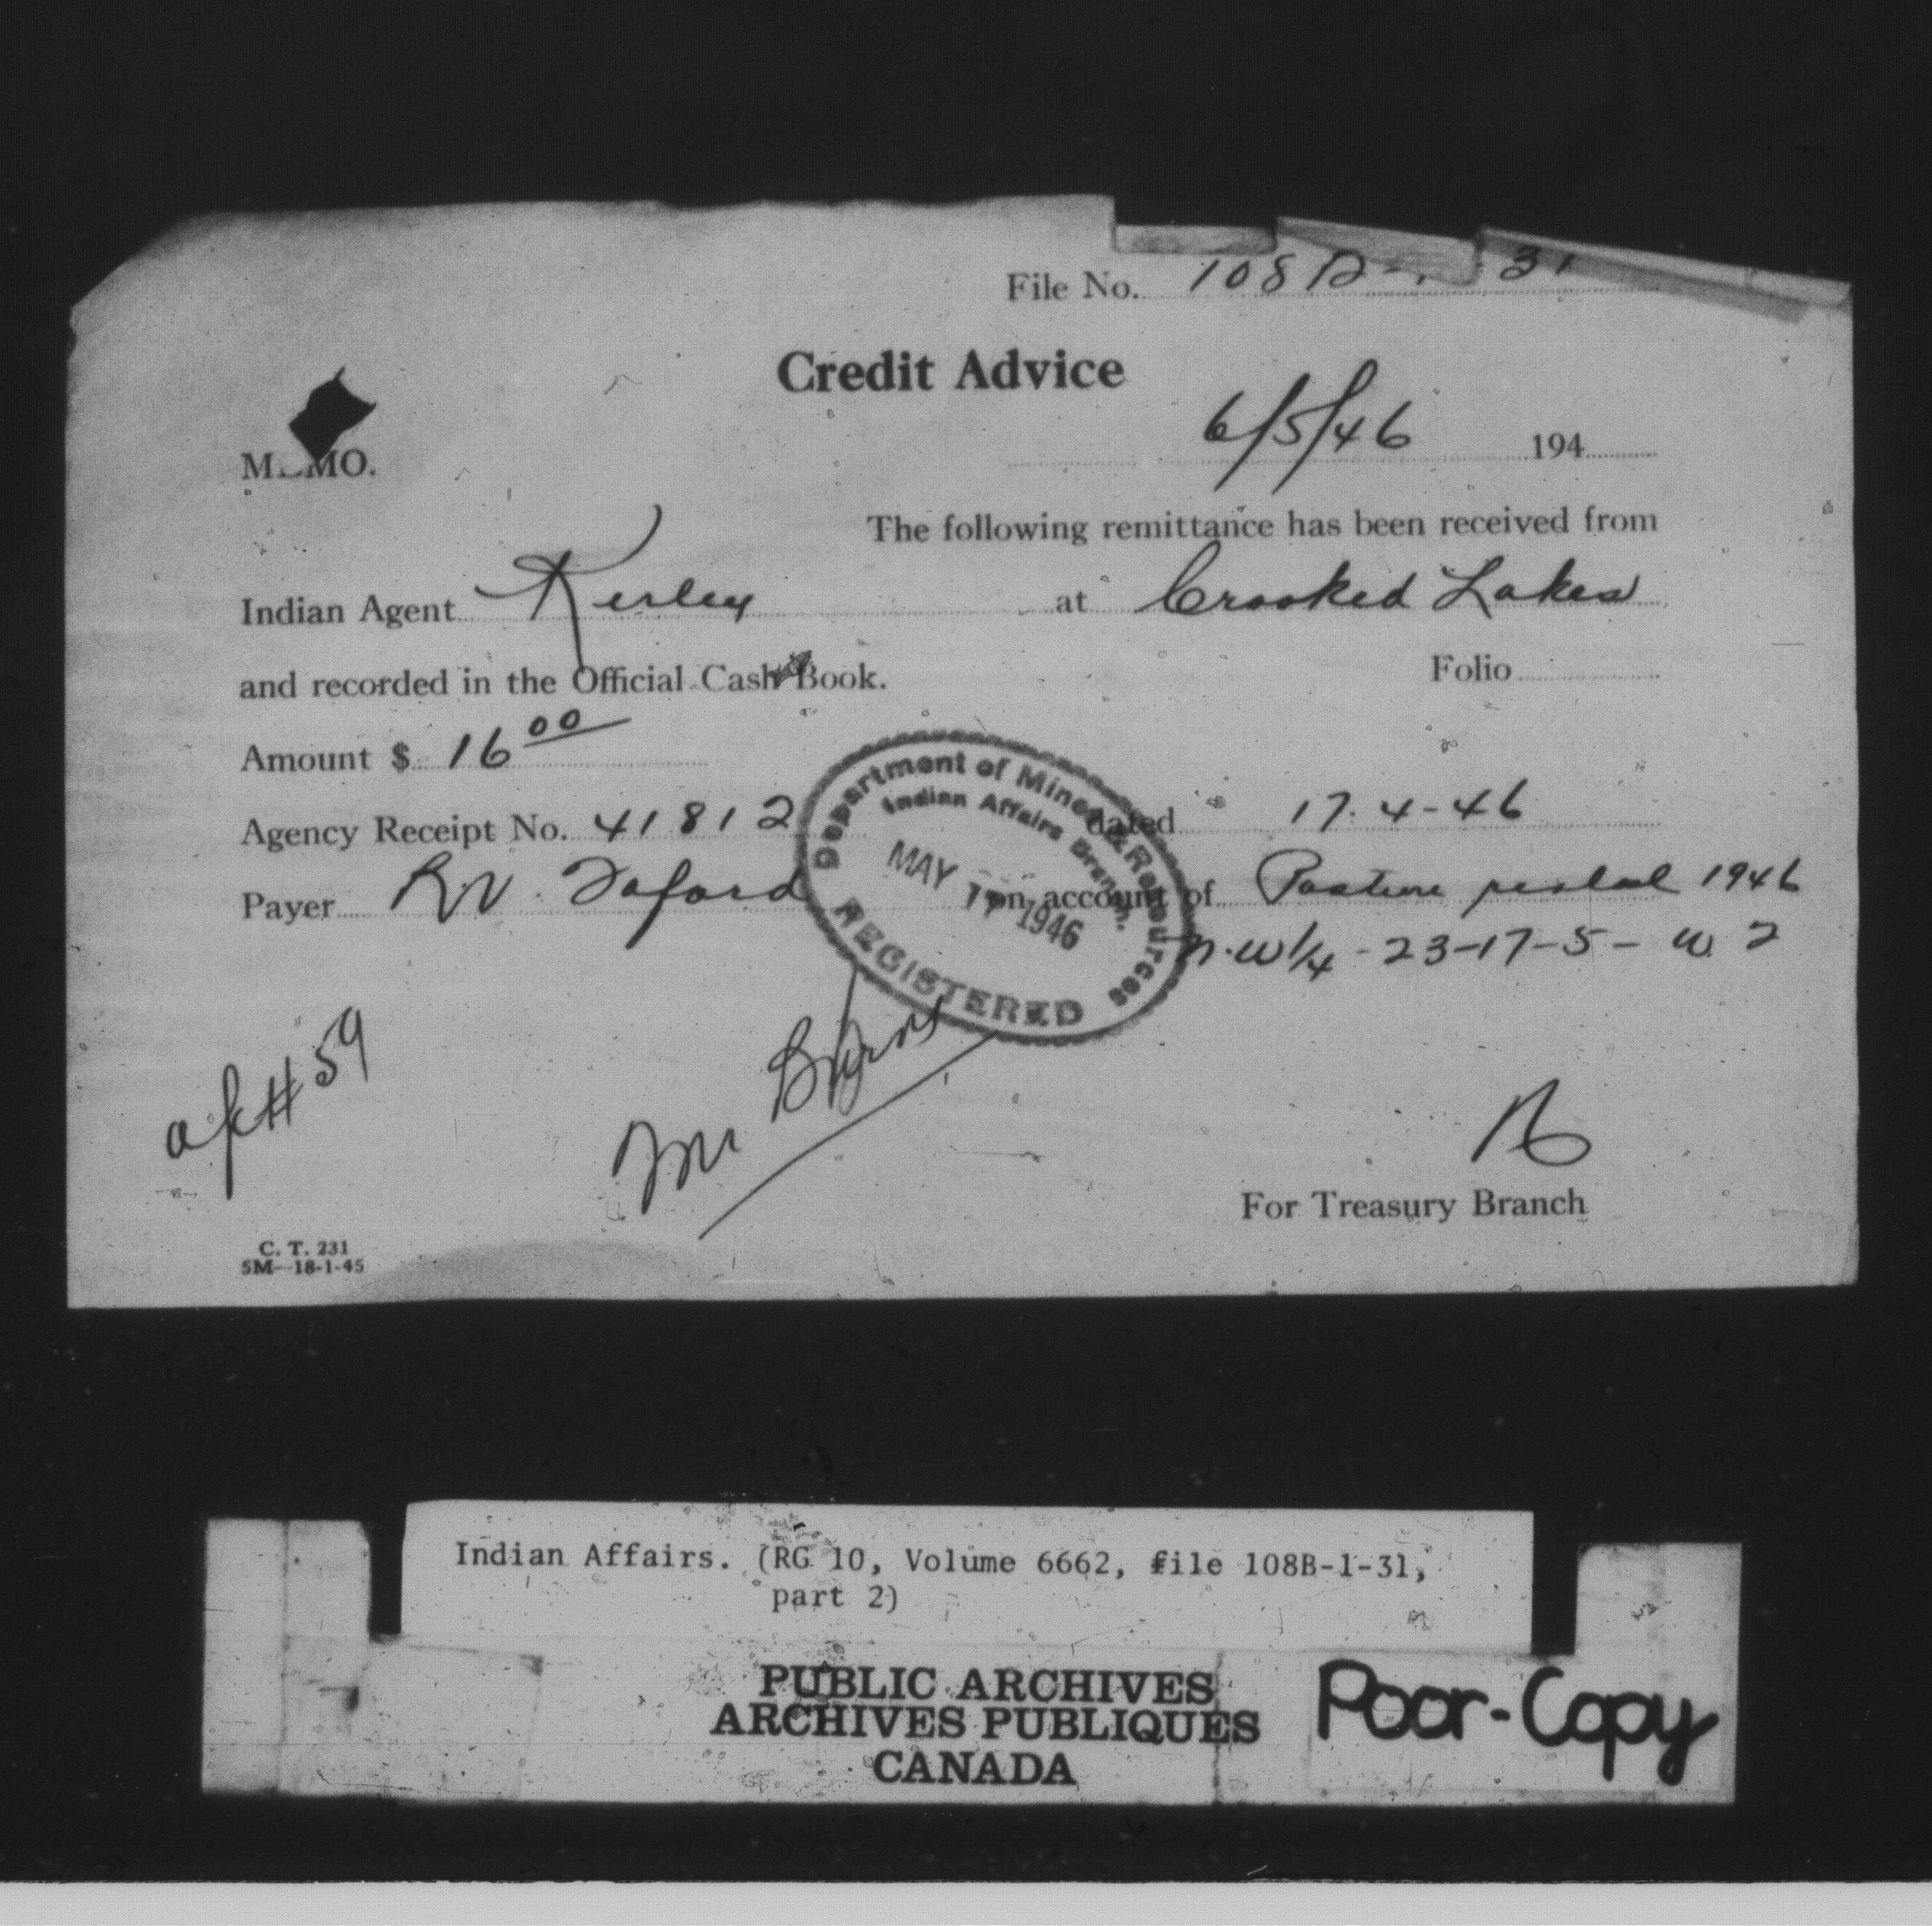 File No. 108 31
Credit Advice
6/5/46 194
M MO.
The following remittance has been received from
Indian Agent Kerley at Crooked Lakes
and recorded in the Official Cash Book. Folio
Amount $ 16 00
Agency Receipt No. 41812 dated 17.4-46
Payer R.V. on account of Pasture rental 1946
N.W 1/4 - 23-17-5- W. 2
Department of Mines & Resources
Indian Affairs Branch.
MAY 17 1946
REGISTERED
# 59
Mr Byrns
For Treasury Branch
C. T. 231
5M-18-1-45
Indian Affairs. (RG 10, Volume 6662, file 108B-1-31,
part 2)
PUBLIC ARCHIVES
ARCHIVES PUBLIQUES
CANADA
Poor-Copy